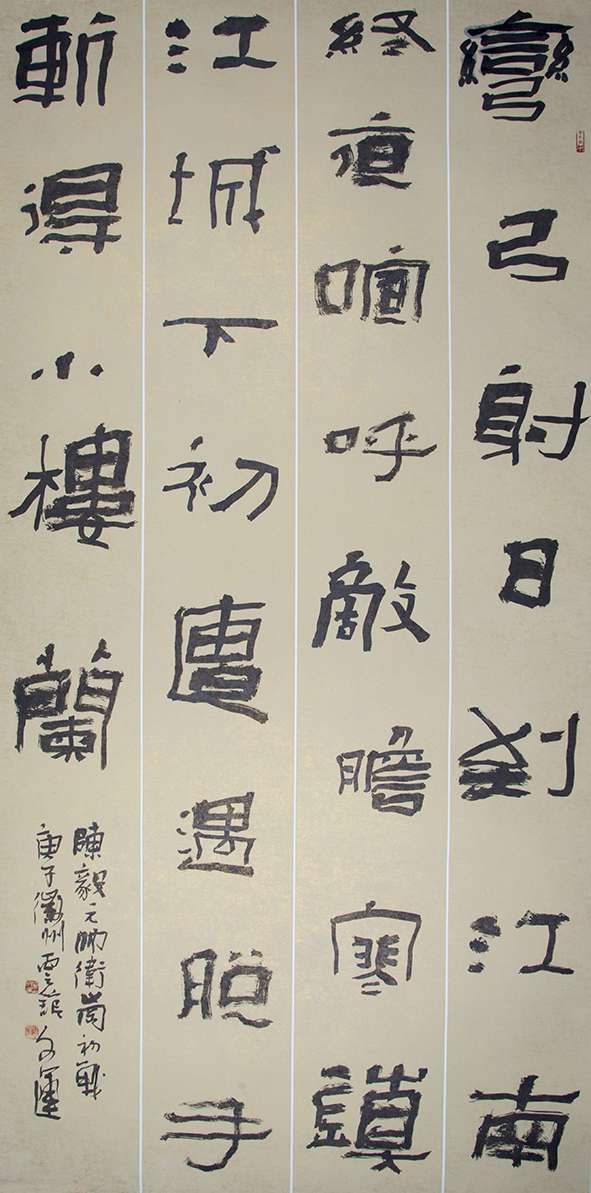 彎弓射日到江南
終夜喧呼敵膽寒鎮
江城下初遭遇脫手
斬得小樓蘭
陳毅元帥衛崗初戰
庚子徽州雲文運